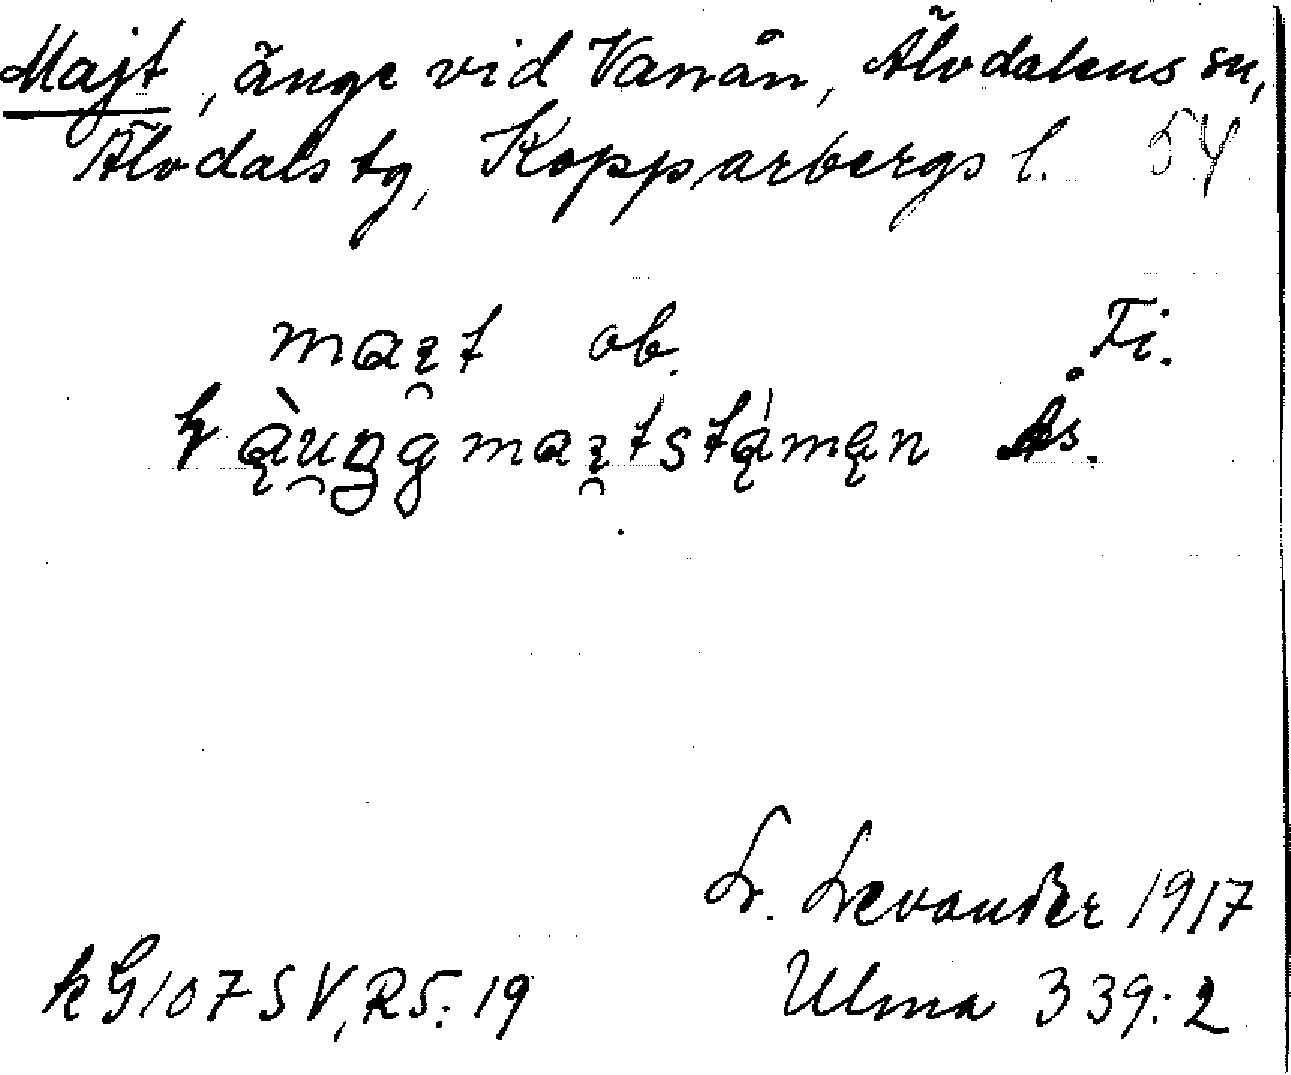 Majt, änge vid Vanån, Älvdalens sn,
Älvdals tg, Kopparbergs l. 54
maı̯t ob. Fi.
Ås.
L. Levander 1917
kG107SV, R5:19 Ulma 339:2